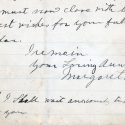 must now close with b
est wishes for your fut
I remain
Your Loving Aunt
Margaret
I shall wait anxiously
you